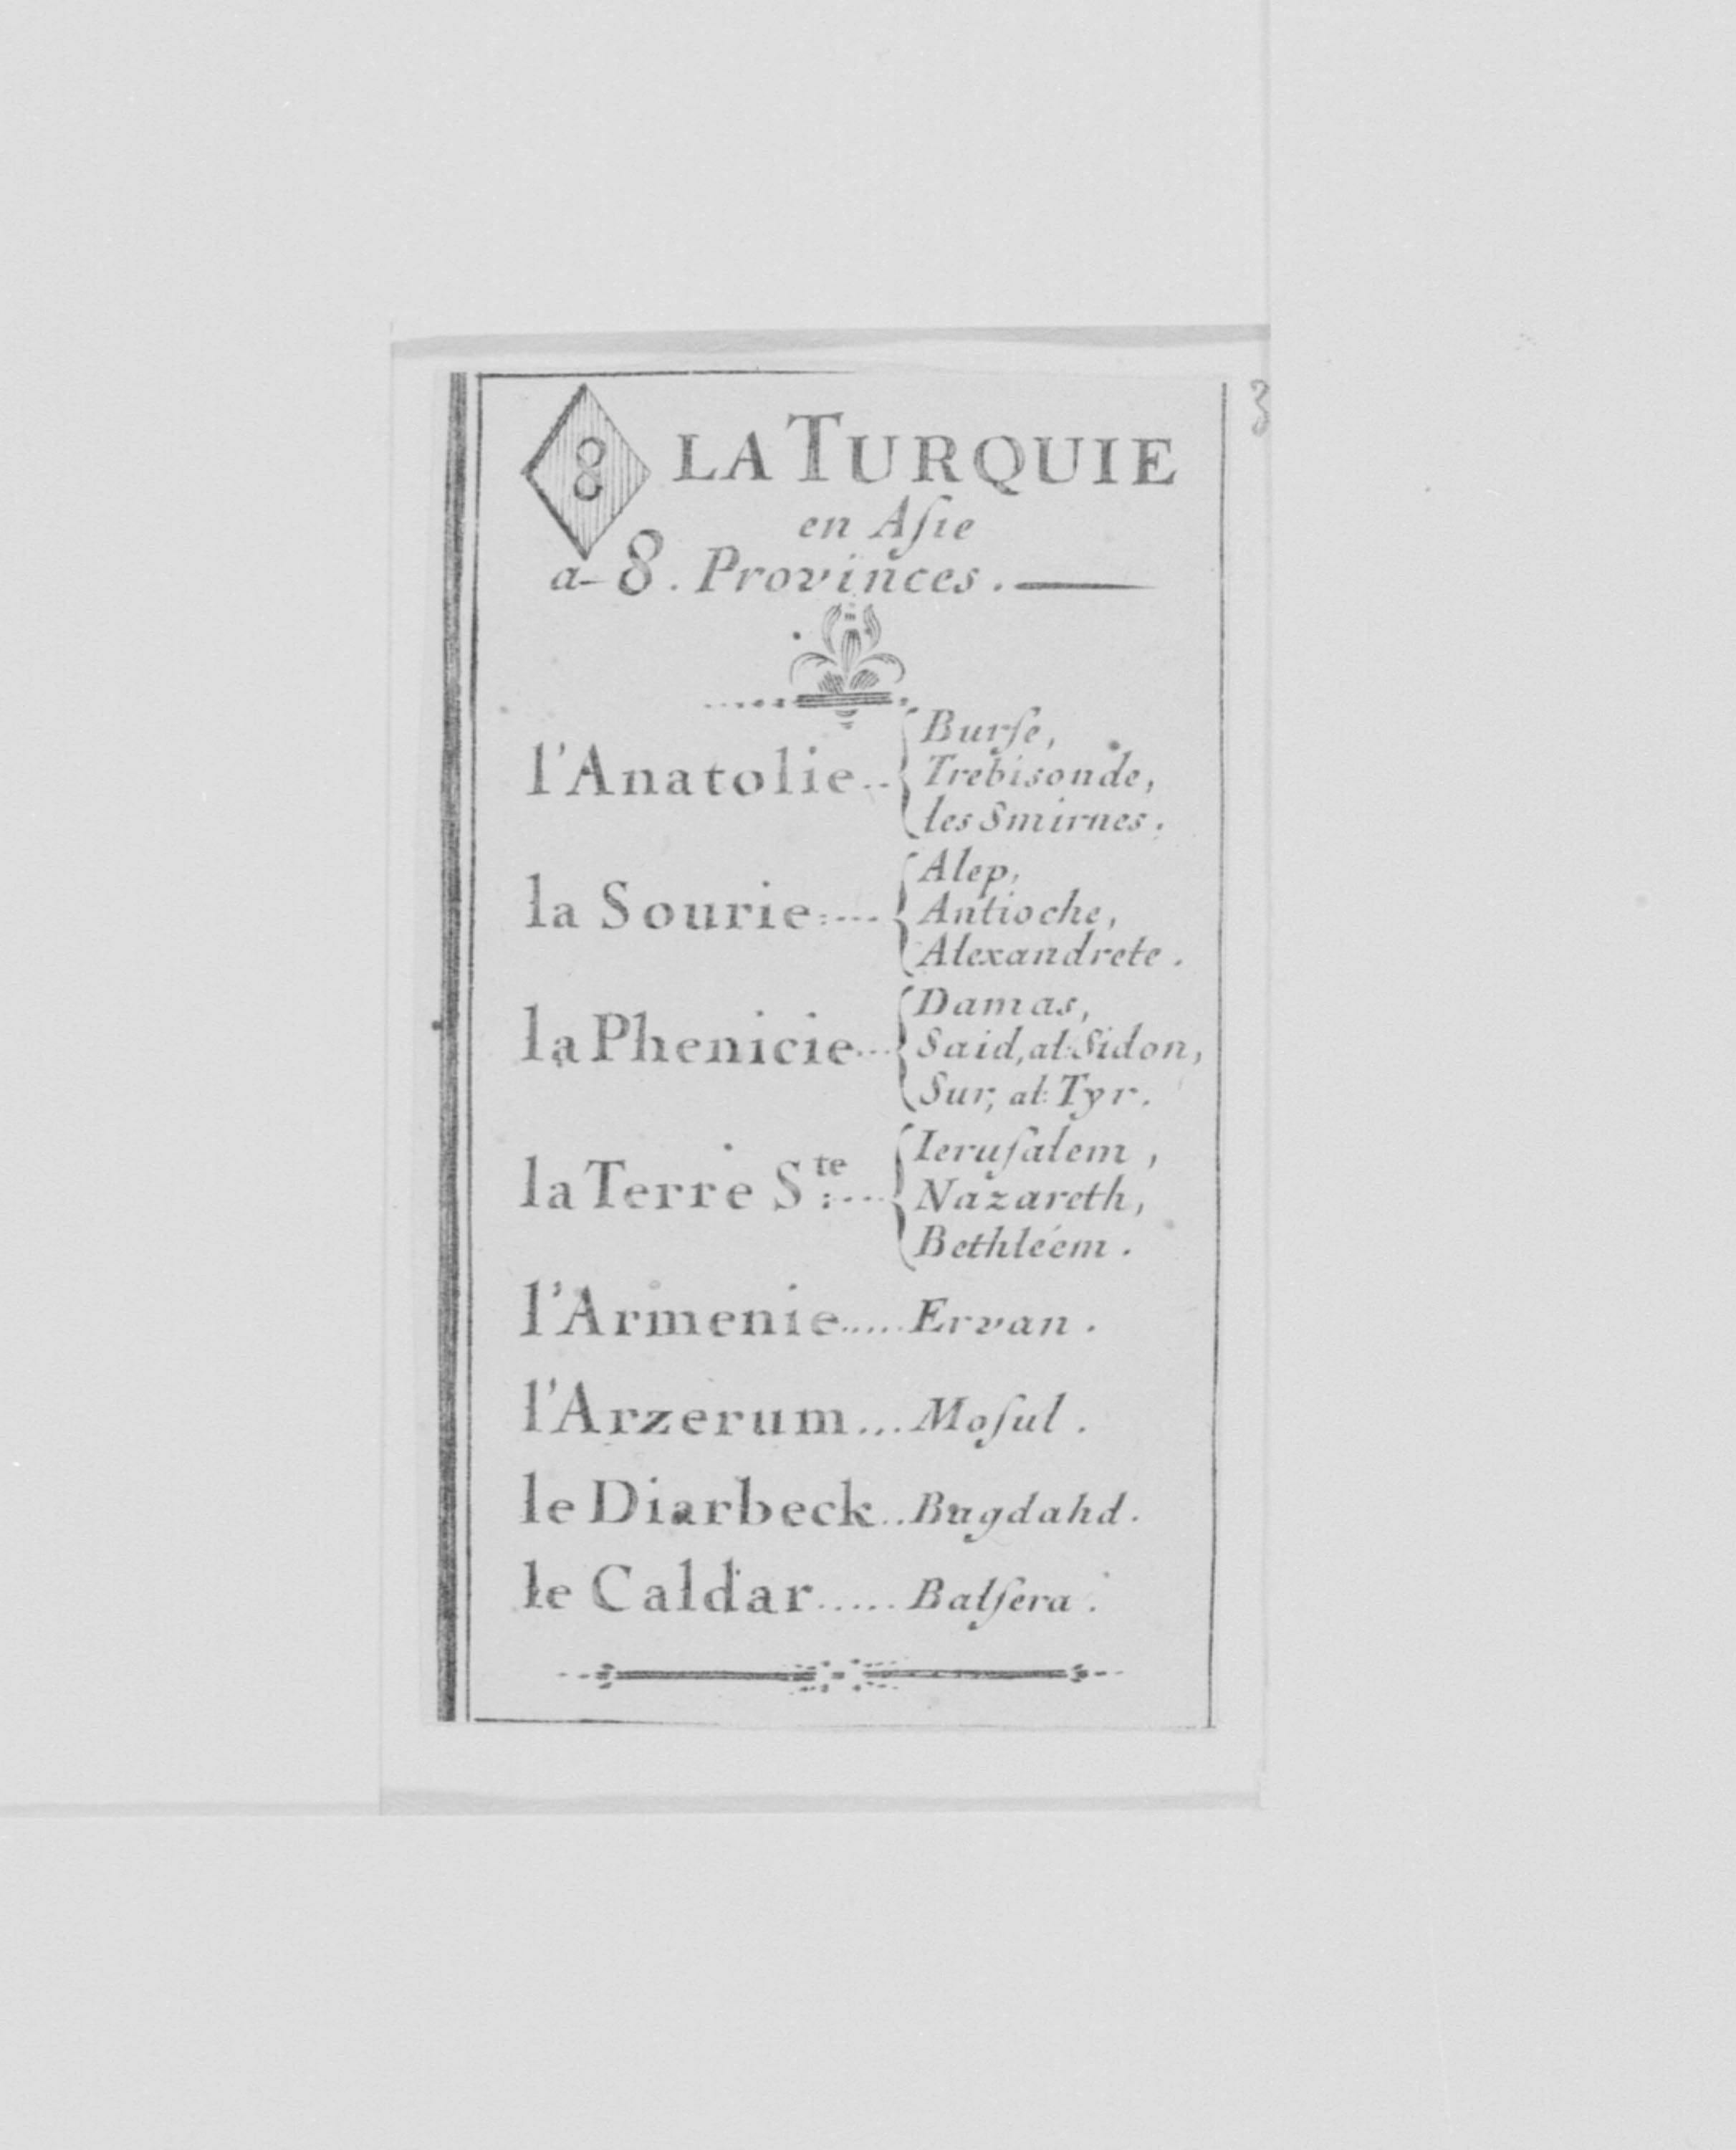 8 LA TURQUIE
en Aſie
a 8. Provinces.
l'Anatolie.. Burſe,
Trebisonde,
les Smirnes.
la Sourie.... Alep,
Antioche,
Alexandrete.
la Phenicie... Damas,
Said, al: Sidon,
Sur, al: Tyr.
la Terre Ste:... Ieruſalem,
Nazareth,
Bethléem.
l'Armenie..... Ervan.
l'Arzerum... Moſul.
le Diarbeck.. Bagdahd.
le Caldar..... Balſera.